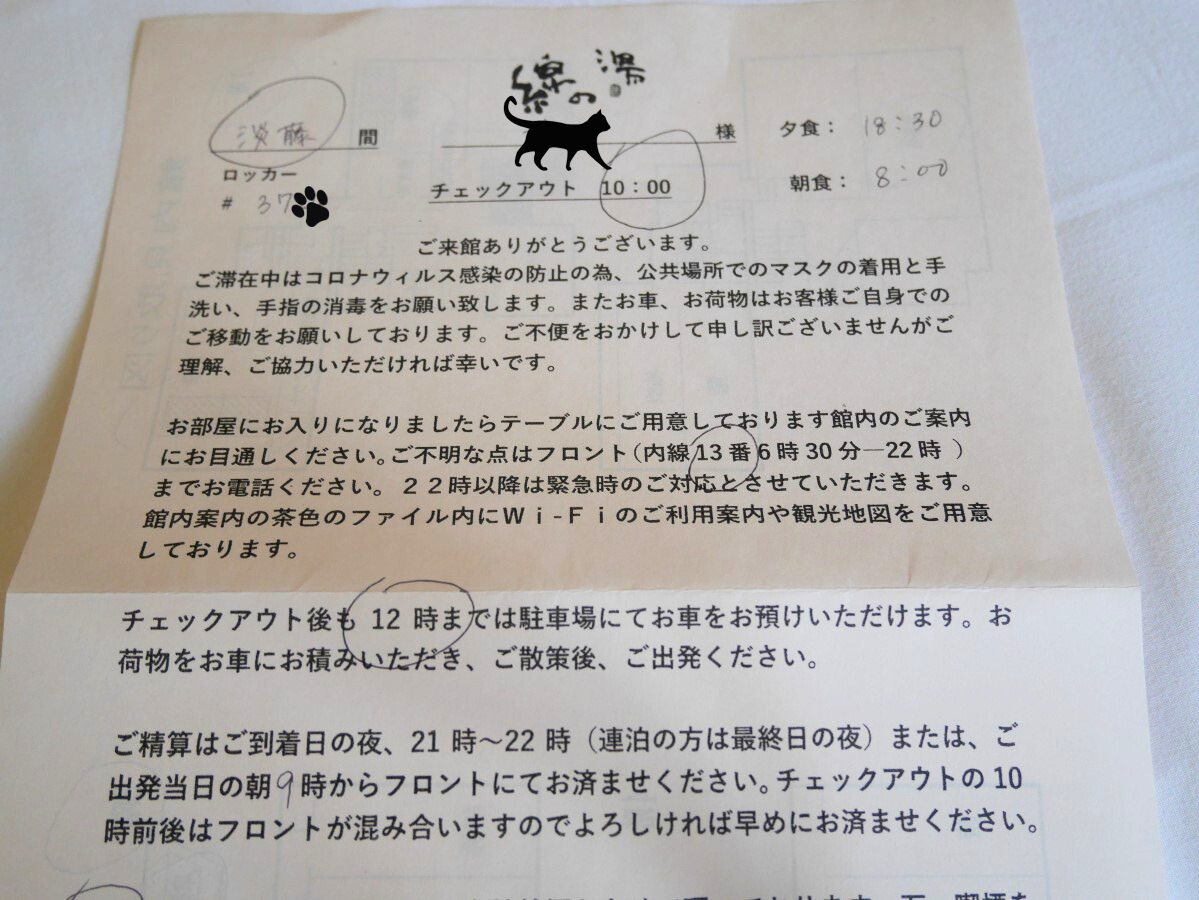 の湯
淡藤 間 様 夕食： 18:30
ロッカー
# 37
チェックアウト 10：00
朝食： 8:00
ご来館ありがとうございます。
ご滞在中はコロナウィルス感染の防止の為、公共場所でのマスクの着用と手
洗い、手指の消毒をお願い致します。またお車、お荷物はお客様ご自身での
ご移動をお願いしております。ご不便をおかけして申し訳ございませんがご
理解、ご協力いただければ幸いです。
お部屋にお入りになりましたらテーブルにご用意しております館内のご案内
にお目通しください。ご不明な点はフロント（内線13番6時30分―22時 ）
までお電話ください。２２時以降は緊急時のご対応とさせていただきます。
館内案内の茶色のファイル内にＷｉ-Ｆｉのご利用案内や観光地図をご用意
しております。
チェックアウト後も 12 時までは駐車場にてお車をお預けいただけます。お
荷物をお車にお積みいただき、ご散策後、ご出発ください。
ご精算はご到着日の夜、21 時～22 時（連泊の方は最終日の夜）または、ご
出発当日の朝9時からフロントにてお済ませください。チェックアウトの 10
時前後はフロントが混み合いますのでよろしければ早めにお済ませください。